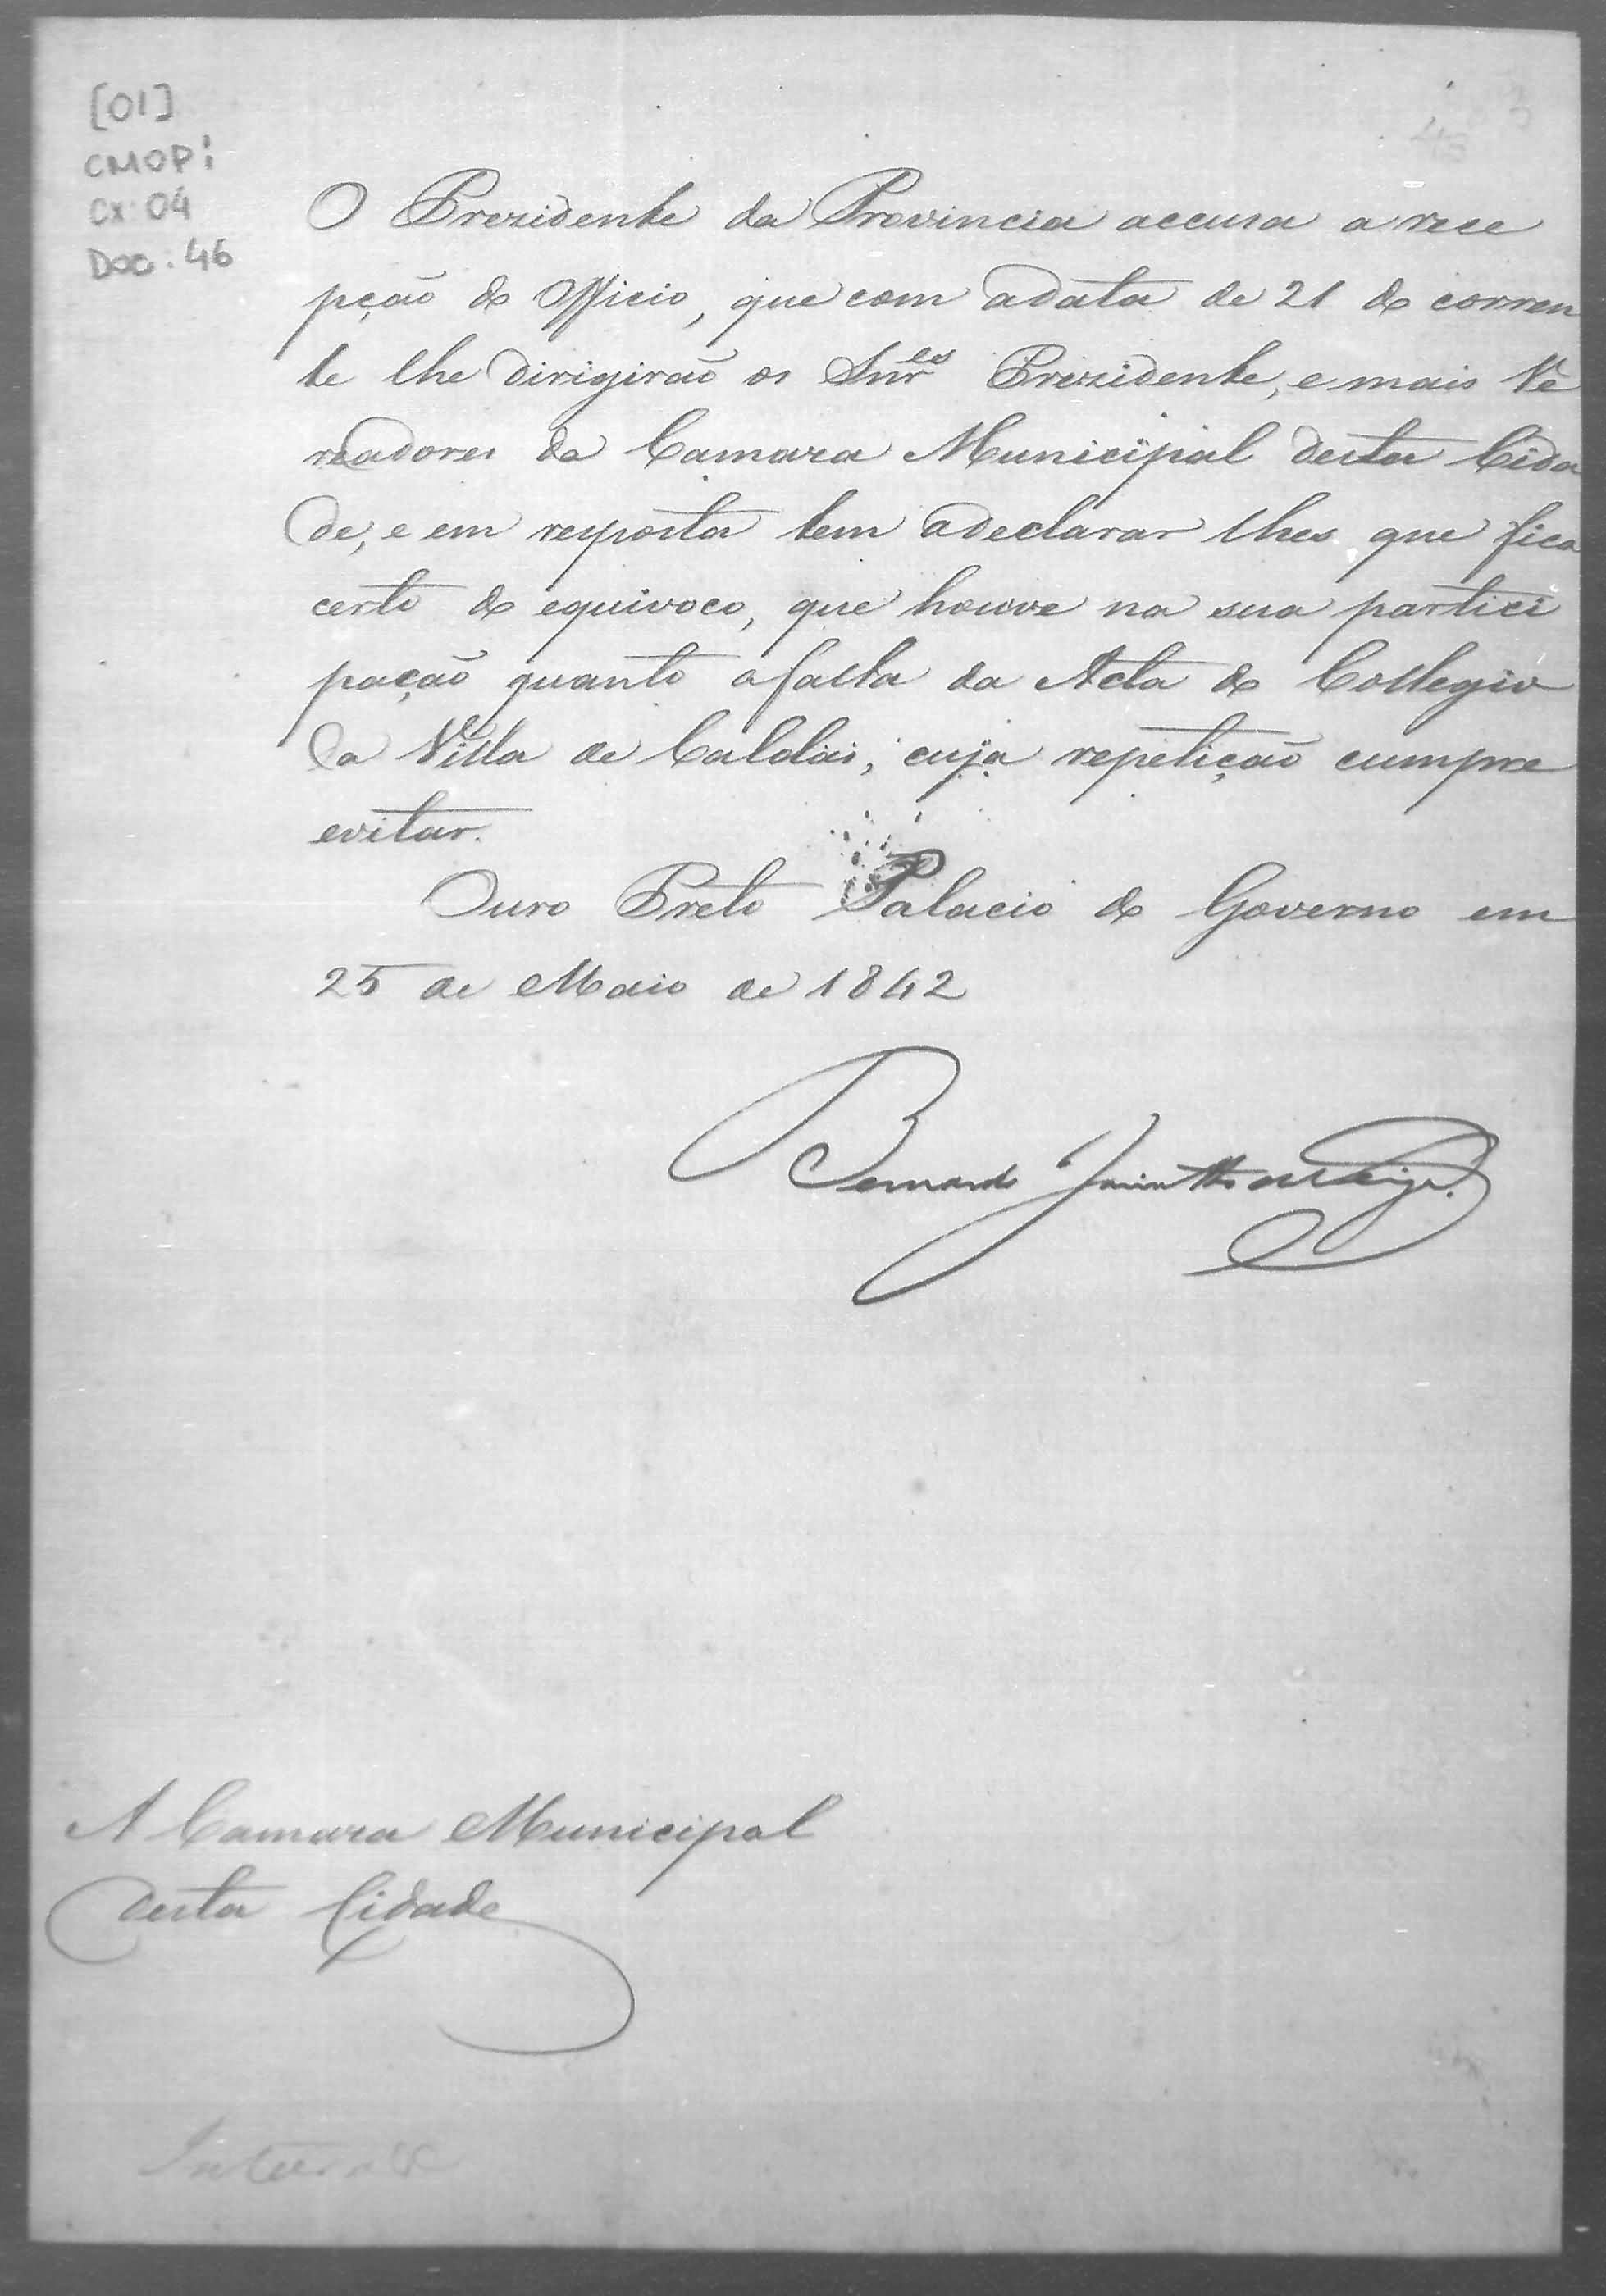 [01]
CMOP:
CX: 04
DOC: 46
45
O Prezidente da Provincia accusa a rece
pção do Officio, que com adata de 21 do corren
te lhe dirigirão os Snr.es Prezidente, e mais Ve
readores da Camara Municipal desta Cida
de, e em resposta tem adeclarar lhes que fica
certo do equivoco, que houve na sua partici
pação quanto a falta da Acta do Collegio
da Villa de Caldas, cuja repetição cumpre
evitar.
Ouro Preto Palacio do Governo em
25 de Maio de 1842
Bernardo Jacintho da Veiga.
A Camara Municipal
desta Cidade